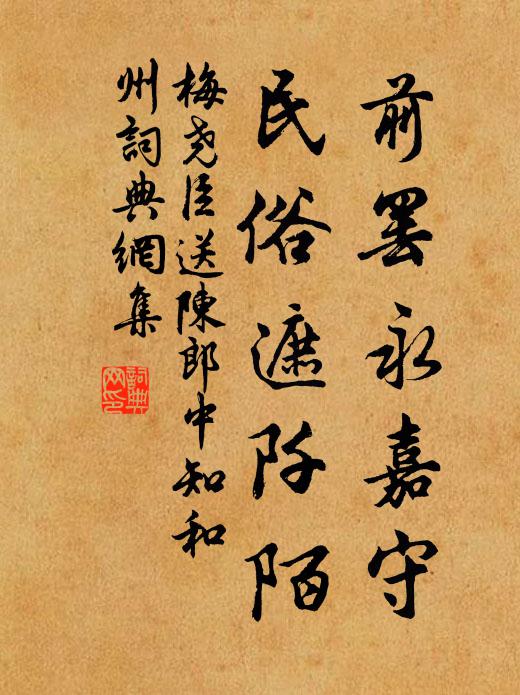 前罢永嘉守
民俗遮阡陌
梅尧臣送陳郎中知和
州詞典網集
詞典
网印